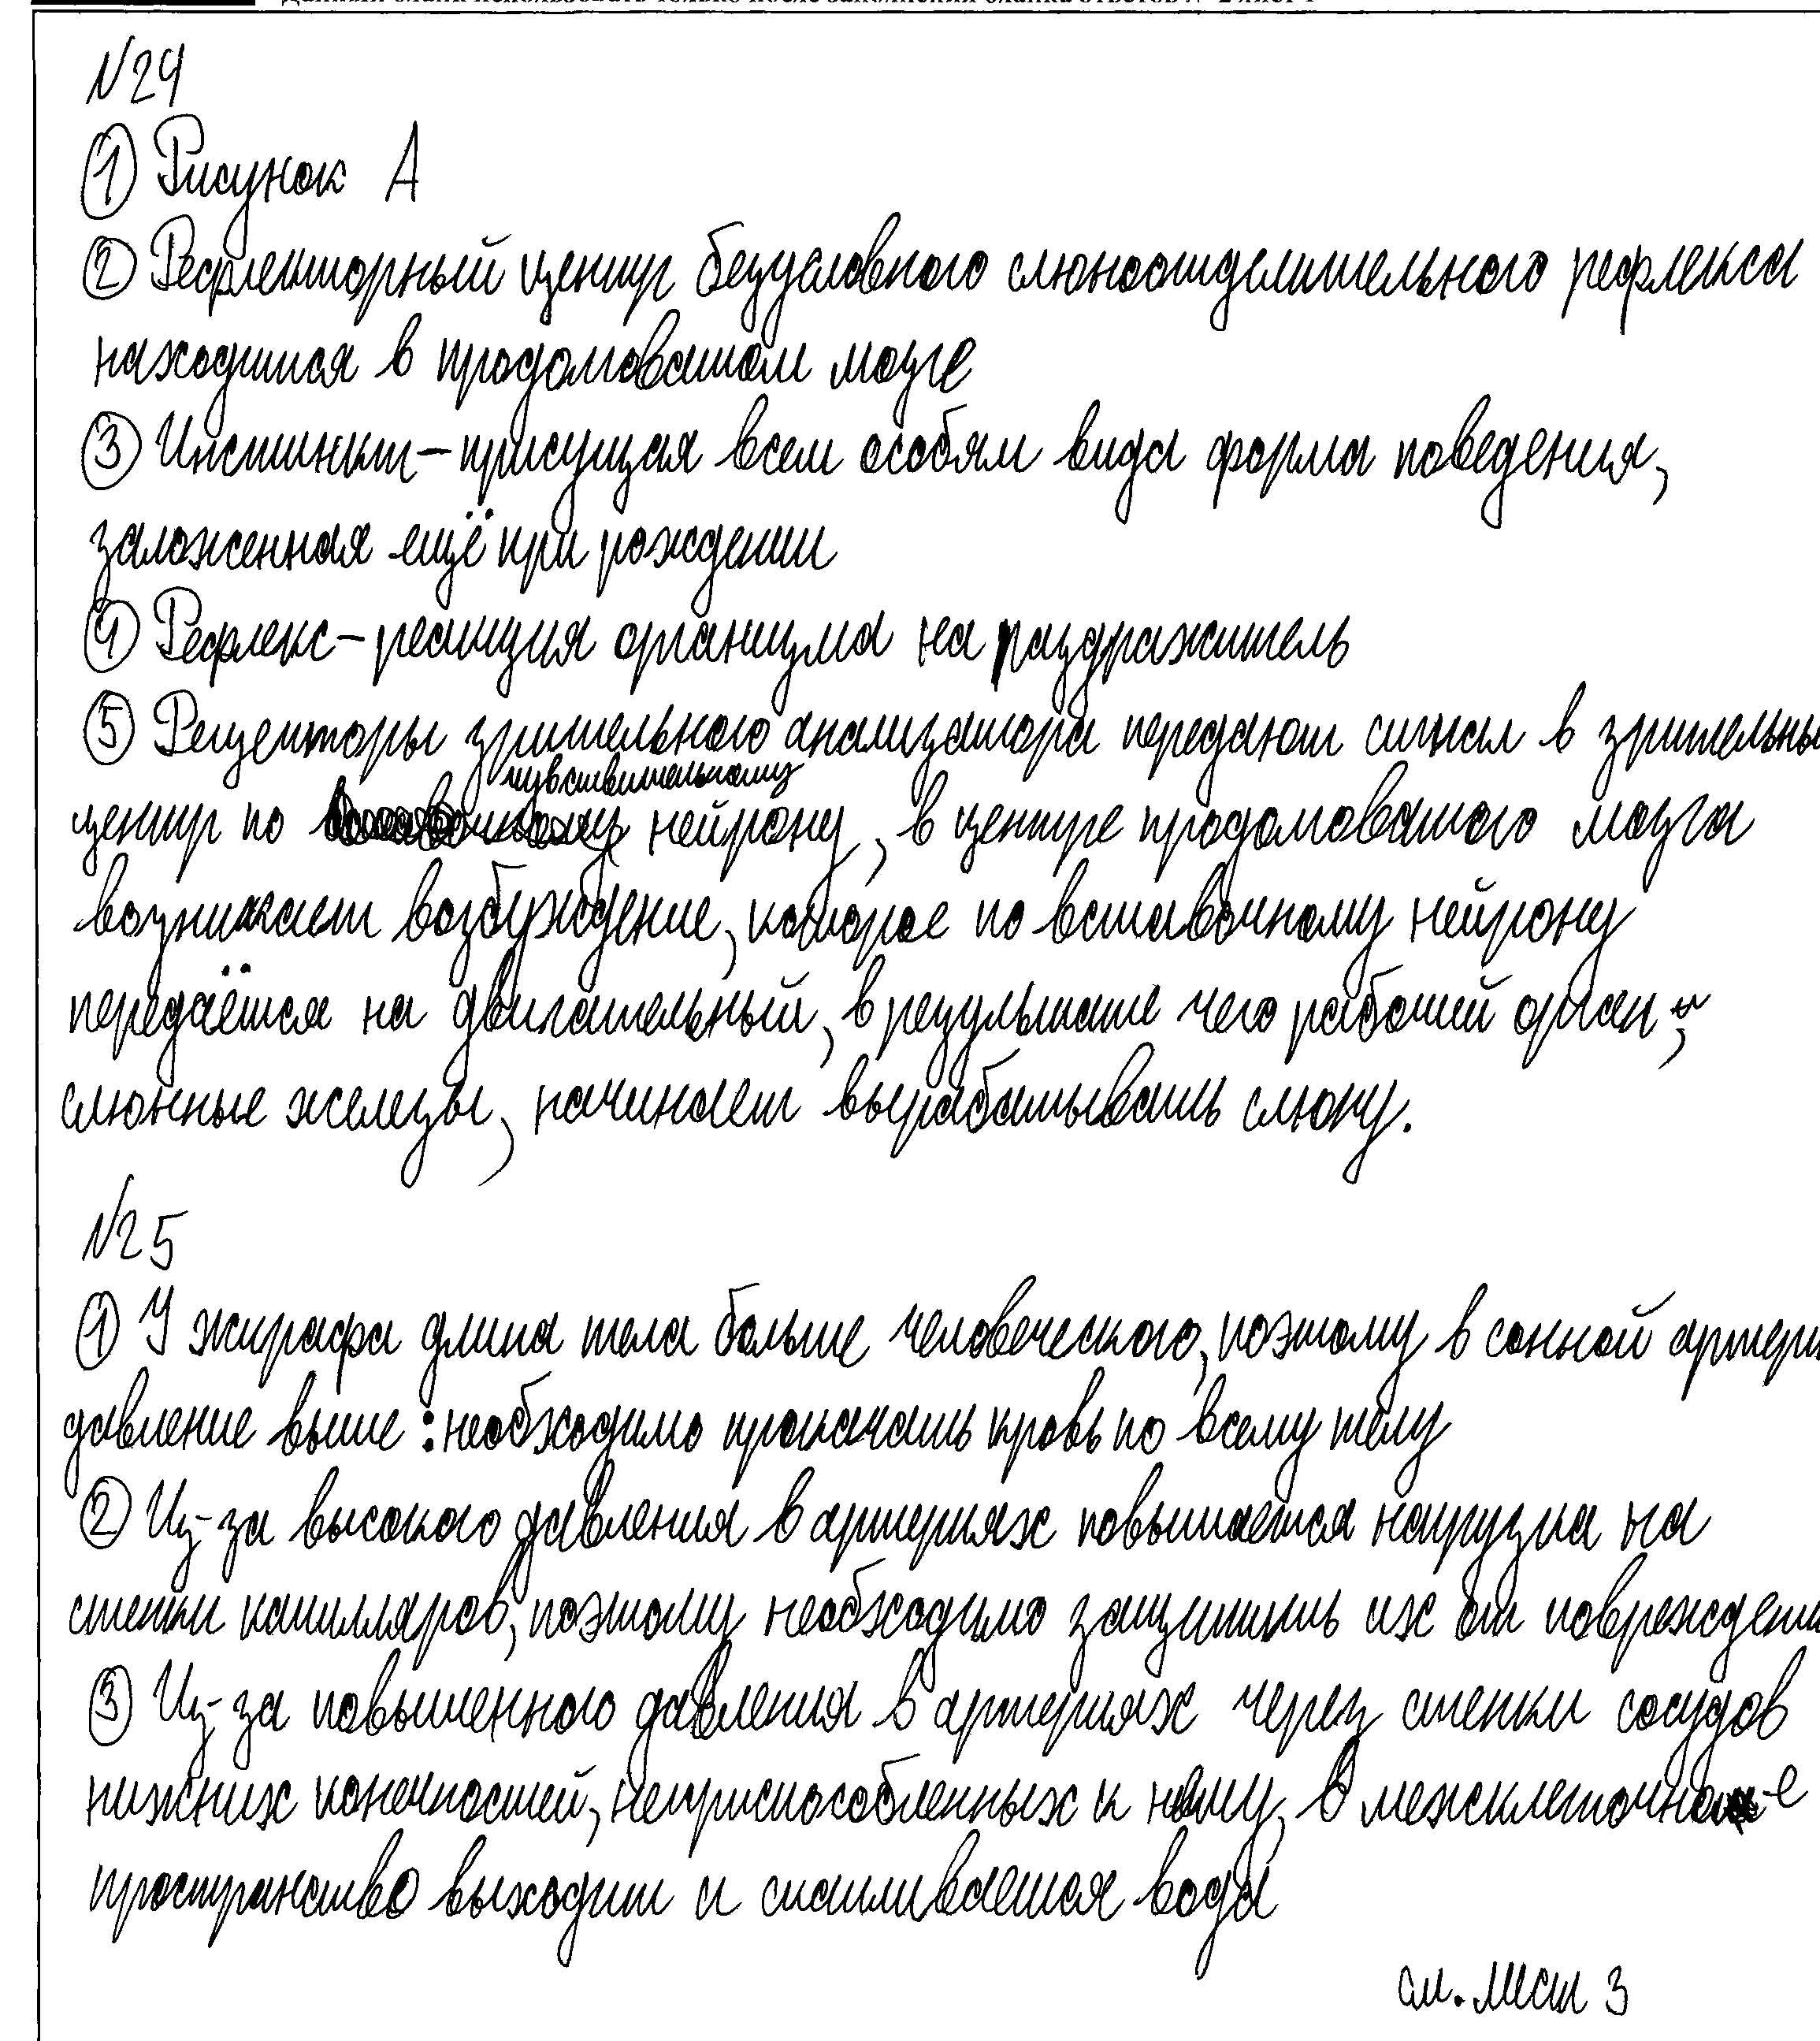 №24
① Рисунок А
② Рефлекторный центр безусловного слюноотделительного рефлекса
находится в продолговатом мозге
③ Инстинкт – присущая всем особям вида форма поведения,
заложенная ещё при рождении
④ Рефлекс – реакция организма на раздражитель
⑤ Рецепторы зрительного анализатора передают сигнал в зрительны
чувствительному
центр по нейрону, в центре продолговатого мозга
возникает возбуждение, которое по вставочному нейрону
передаётся на двигательный, в результате чего рабочий орган,
слюнные железы, начинает вырабатывать слюну.
№25
① У жирафа длина тела больше человеческого, поэтому в сонной артери
давление выше: необходимо прокачать кровь по всему телу
② Из-за высокого давления в артериях повышается нагрузка на
стенки капилляров, поэтому необходимо защитить их от повреждени
③ Из-за повышенного давления в артериях через стенки сосудов
нижних конечностей, неприспособленных к нему, в межклеточное
пространство выходит и скапливается вода
см. лист 3